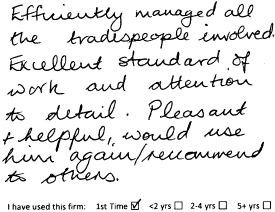 Efficiently managed all
the tradespeople involved.
Excellent standard of
work and attention
to detail. Pleasant
+ helpful, would use
him again/recommend
to others.
I have used this firm: 1st Time ☑ <2 yrs ☐ 2-4 yrs ☐ 5+ yrs ☐